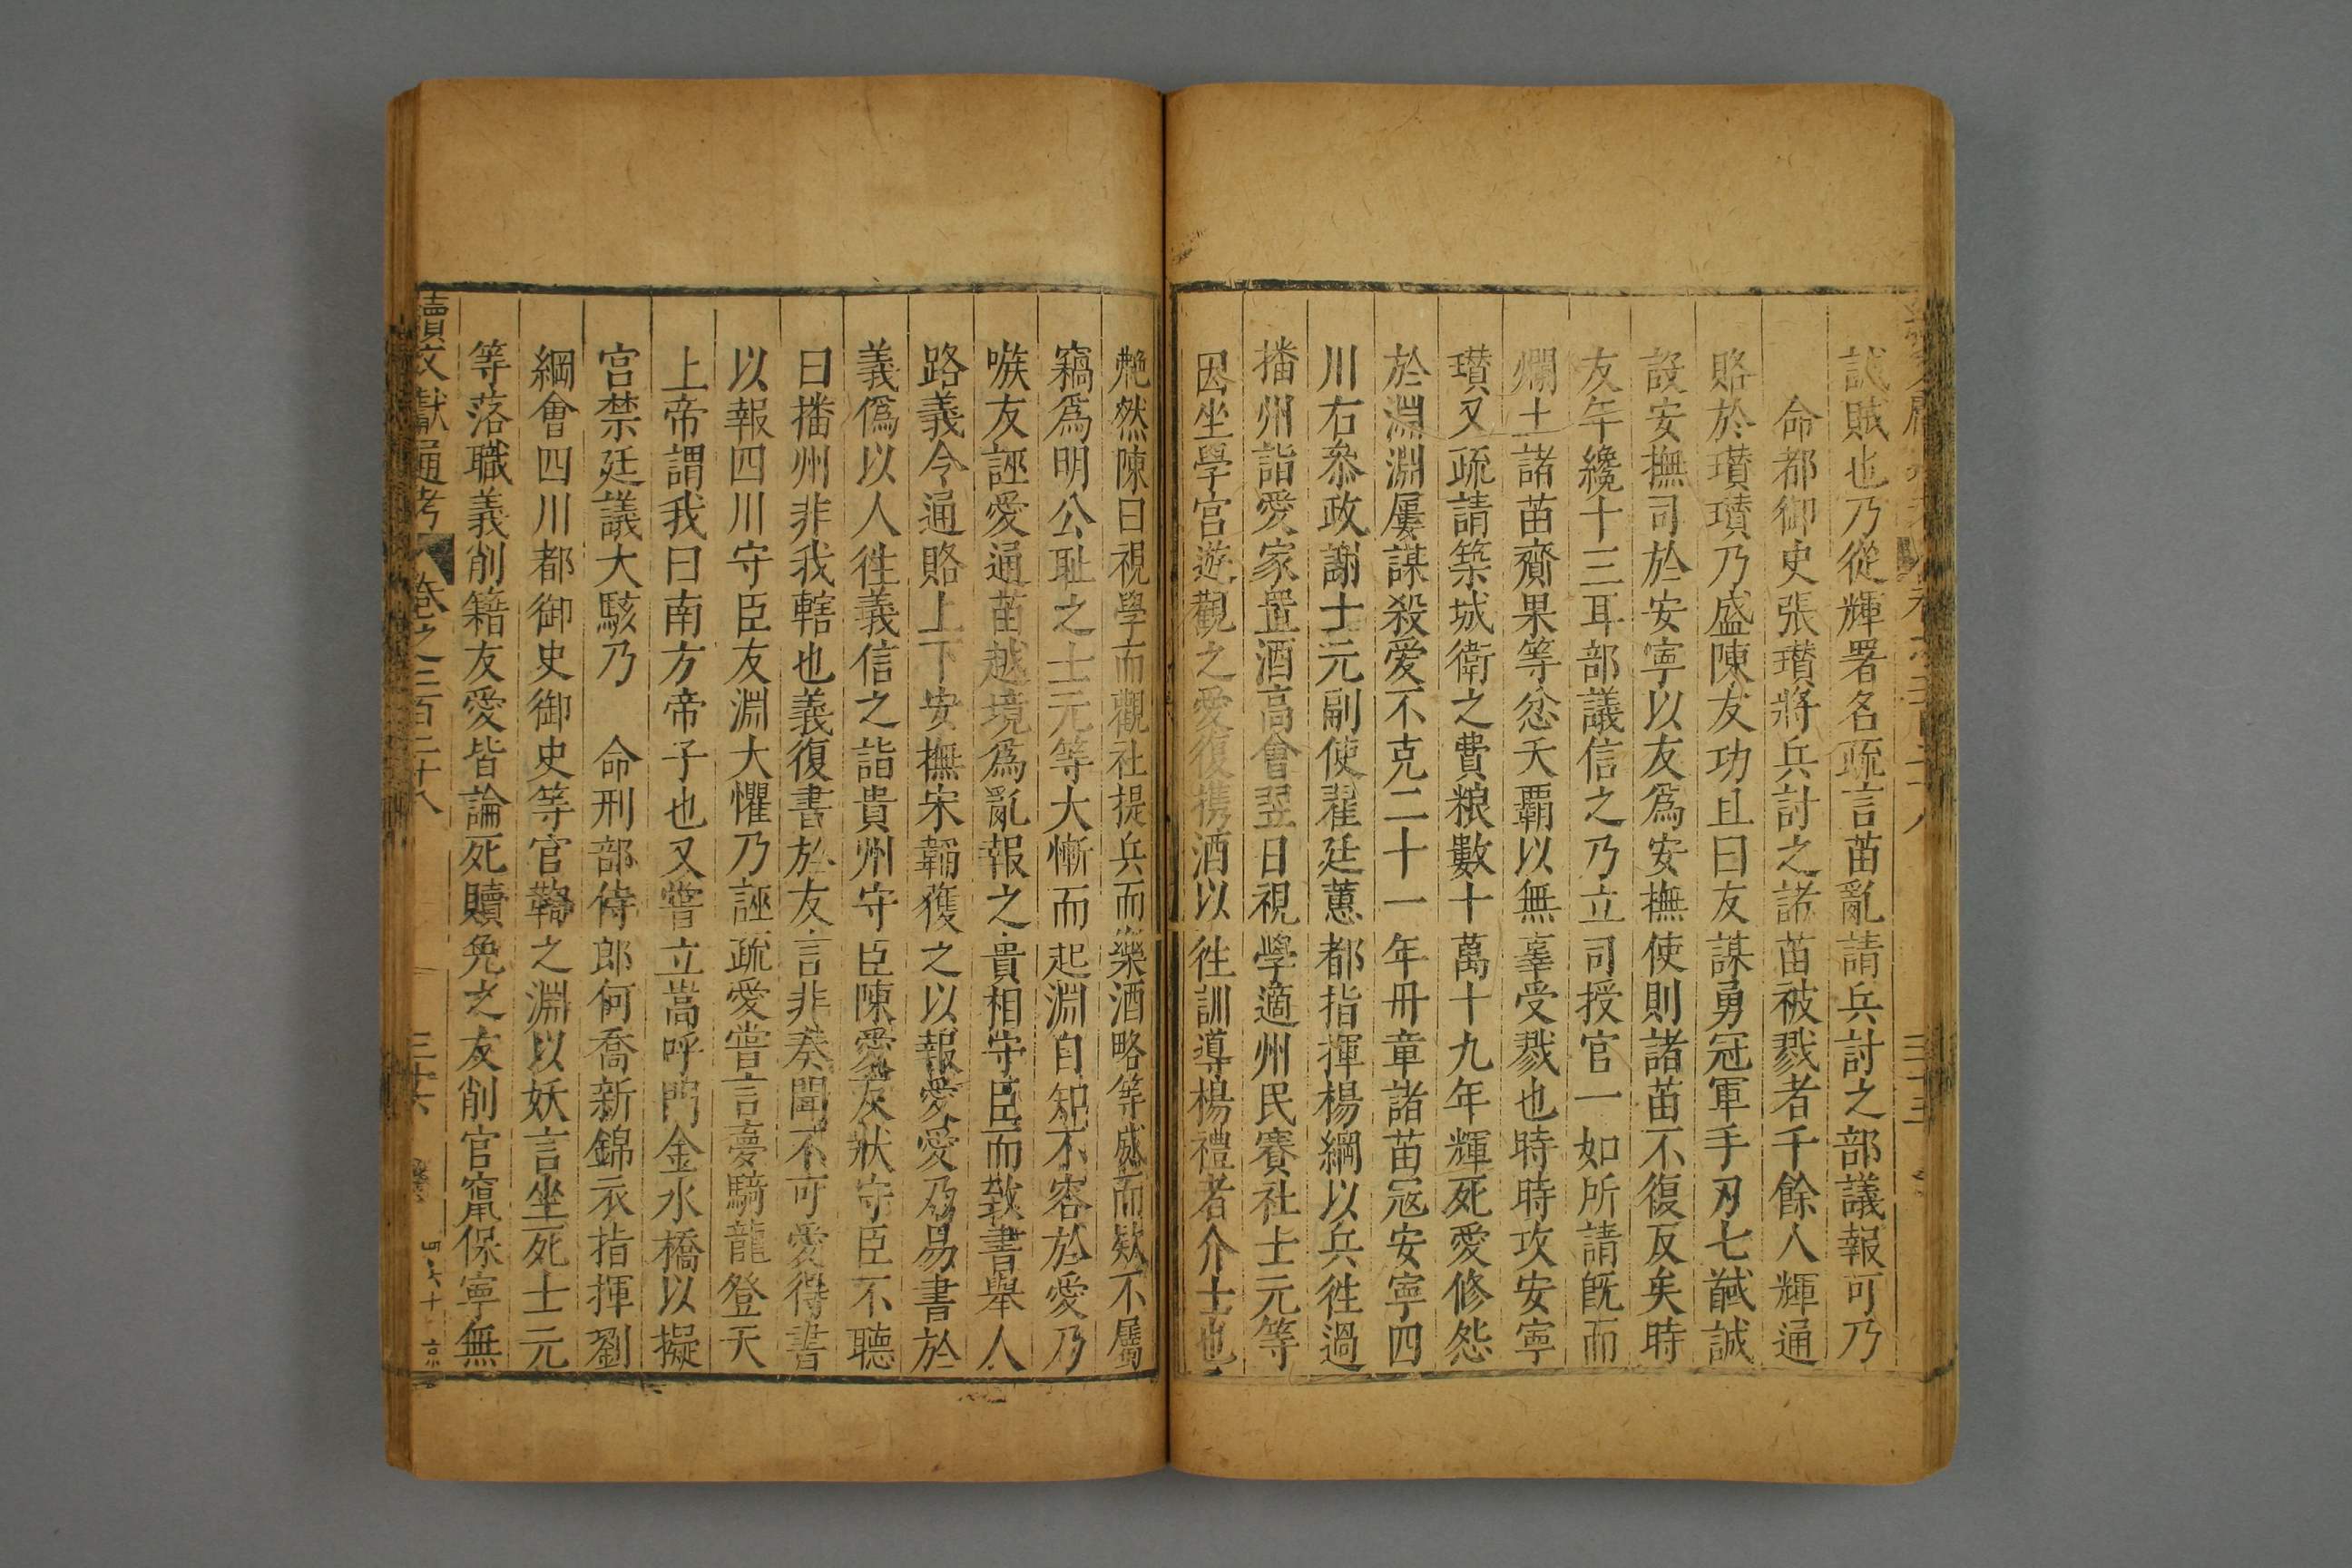 誠賊也乃從輝署名疏言苗亂請兵討之部議報可乃
命都御史張瓚將兵討之諸苗被戮者千餘人輝通
賂於瓚瓚乃盛陳友功且曰友謀勇冠軍手刃七馘誠
設安撫司於安寧以友爲安撫使則諸苗不復反矣時
友年纔十三耳部議信之乃立司授官一如所請旣而
爛土諸苗齎果等忿夭覇以無辜受戮也時時攻安寧
瓚又疏請築城衛之費粮數十萬十九年輝死愛修怨
於淵淵屢謀殺愛不克二十一年冊章諸苗冦安寧四
川右叅政謝士元副使翟廷蕙都指揮楊綱以兵徃過
播州詣愛家置酒高會翌日視學適州民賽社士元等
因坐學宮遊觀之愛復携酒以徃訓導楊禮者介士也
艴然陳曰視學而觀社提兵而樂酒略等威而欵不屬
竊爲明公耻之士元等大慚而起淵自知不容於愛乃
嗾友誣愛通苗越境爲亂報之貴相守臣而敎書舉人
路義令通賂上下安撫宋韜獲之以報愛愛乃易書於
義僞以人徃義信之詣貴州守臣陳愛友狀守臣不聽
曰播州非我轄也義復書於友言非奏聞不可愛得書
以報四川守臣友淵大懼乃誣疏愛嘗言夢騎龍登天
上帝謂我曰南方帝子也又嘗立嵩呼門金水橋以擬
宮禁廷議大駭乃　命刑部侍郎何喬新錦衣指揮劉
綱會四川都御史御史等官鞫之淵以妖言坐死士元
等落職義削籍友愛皆論死贖免之友削官竄保寧無
續文獻通考　卷之二百三十八　三十六